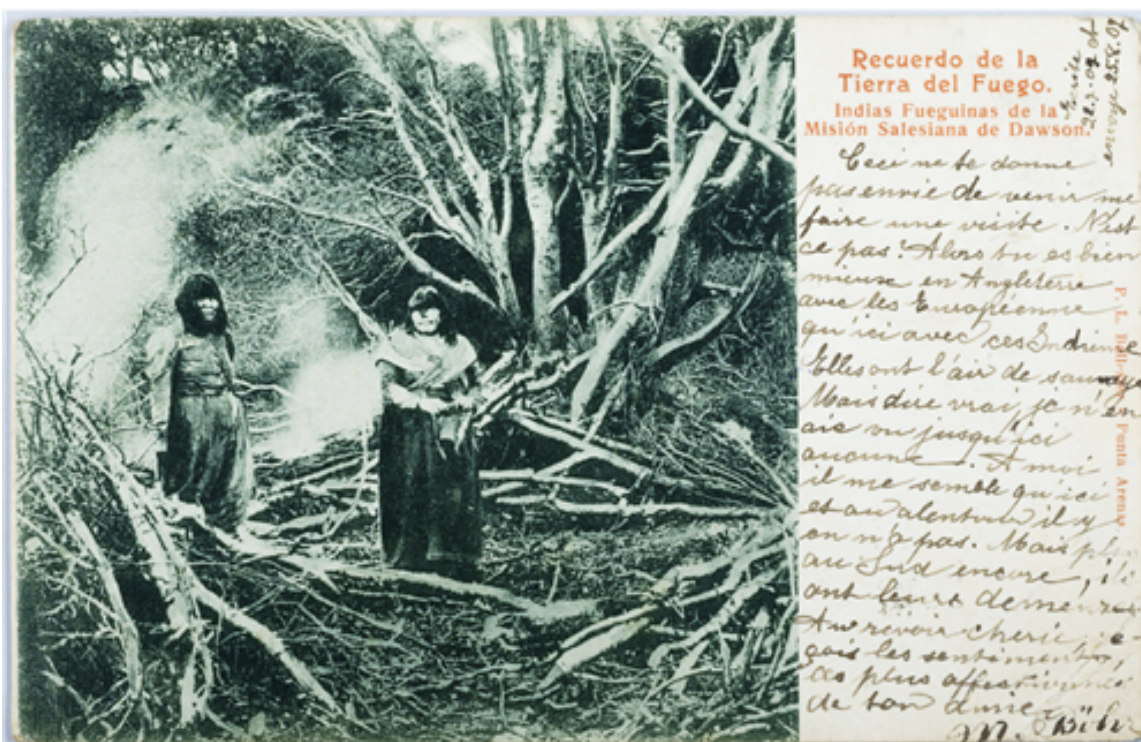 Recuerdo de la
Tierra del Fuego.
Indias Fueguinas de la
Misión Salesiana de Dawson.
Ecrite
envoyé 25.8.07
Ceci ne te donne
pas envie de venir me
faire une visite. N'est
ce pas? Alors tu es bien
mieux en Angleterre
avec les Européenne
qu'ici avec ces Indienne
Elles ont l'air de
Mais dire vrai, je n'en
aie vu jusqu'ici
aucune. A moi
il me semble qu'ici
et au alentour il y
en n'a pas. Mais plus
au Sud encore, ils
ont leurs
Au revoir cherie,
çois les sentiments,
les plus
de ton amie
M.
Punta Arenas